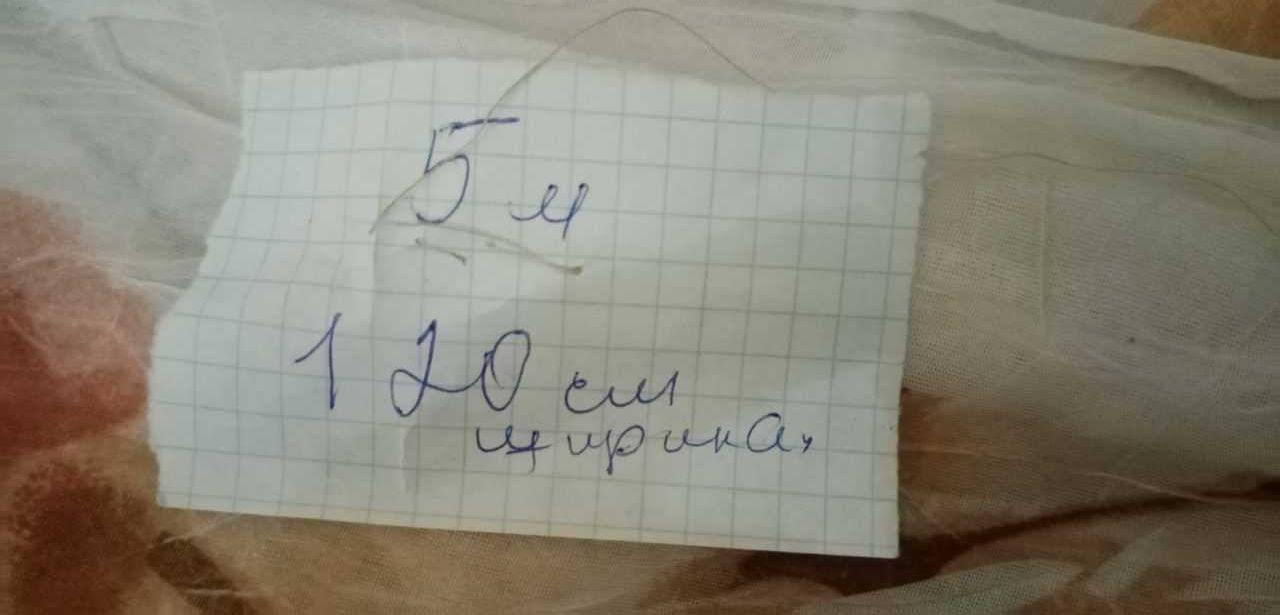 5 м
120 см
щирина,